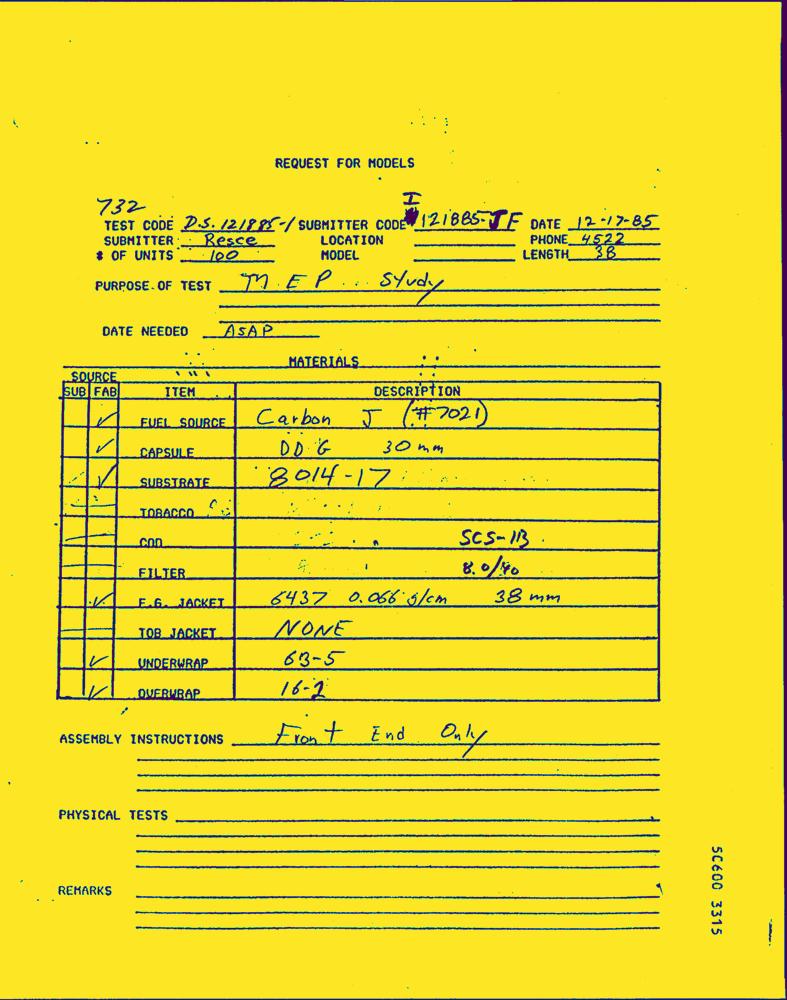 REQUEST FOR MODELS
I
732
TEST CODE D.S. 121885-1 SUBMITTER CODE 121885-JF DATE 12-17-85
SUBMITTER Resce LOCATION PHONE 4522
# OF UNITS 100 MODEL LENGTH 38
PURPOSE OF TEST M.E.P... Study
DATE NEEDED ASAP
MATERIALS
SOURCE
SUB FAB ITEM DESCRIPTION
✓ FUEL SOURCE Carbon J (#7021)
✓ CAPSULE DDG 30 mm
✓ SUBSTRATE 8014-17
TOBACCO
COD SCS-1B
FILTER 8.0/40
✓ F.G. JACKET 6437 0.066 g/cm 38 mm
TOB JACKET NONE
✓ UNDERWRAP 63-5
✓ OVERWRAP 16-2
ASSEMBLY INSTRUCTIONS Front End Only
PHYSICAL TESTS
REMARKS
50600 3315